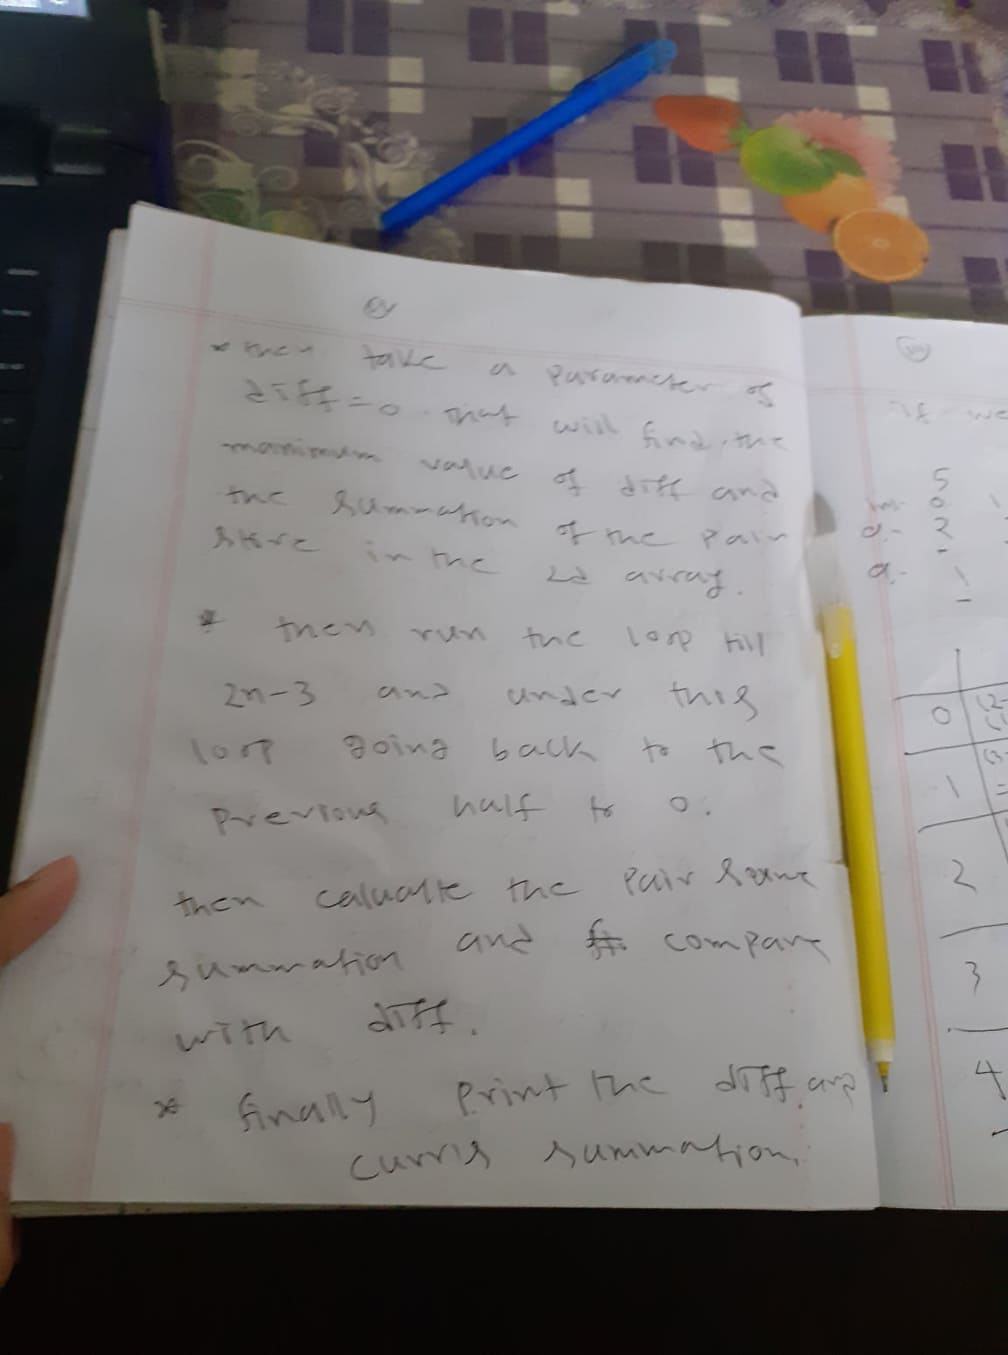 * then take a parameter of
diff=0 that will find the
manimum value of diff and
the summation of the pair
store in the 2d array.
* then run the loop till
2n-3 and under this
loop going back to the
previous half to 0.
then calualte the pair
summation and compare
with diff.
* finally print the diff and
summation.
if we
5
0
2
1
0
1
2
3
4